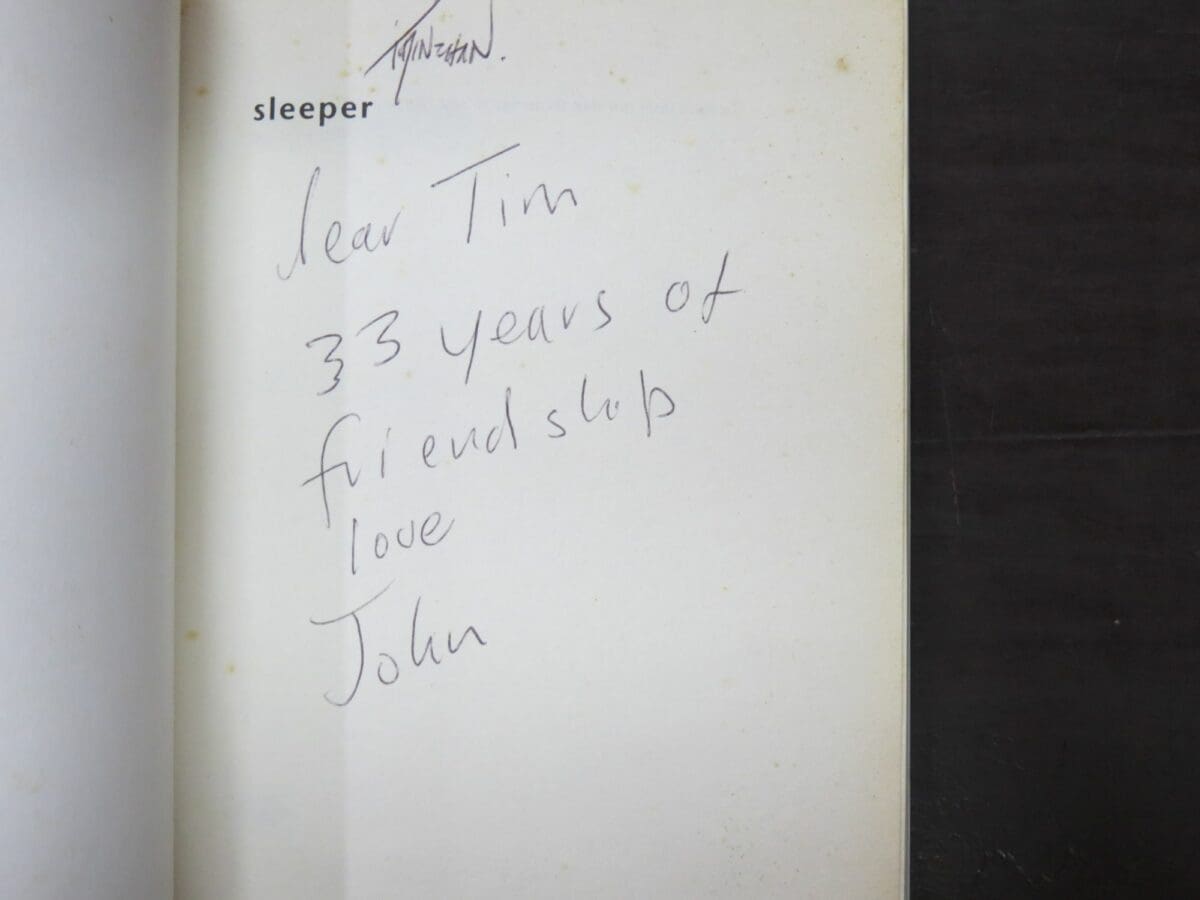 sleeper
dear Tim
33 years of
friendship
love
John